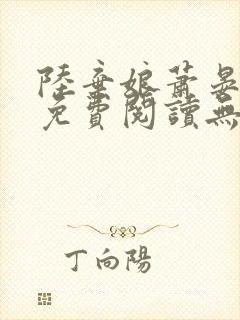 陸棄娘蕭晏
免費閱讀無
丁向陽